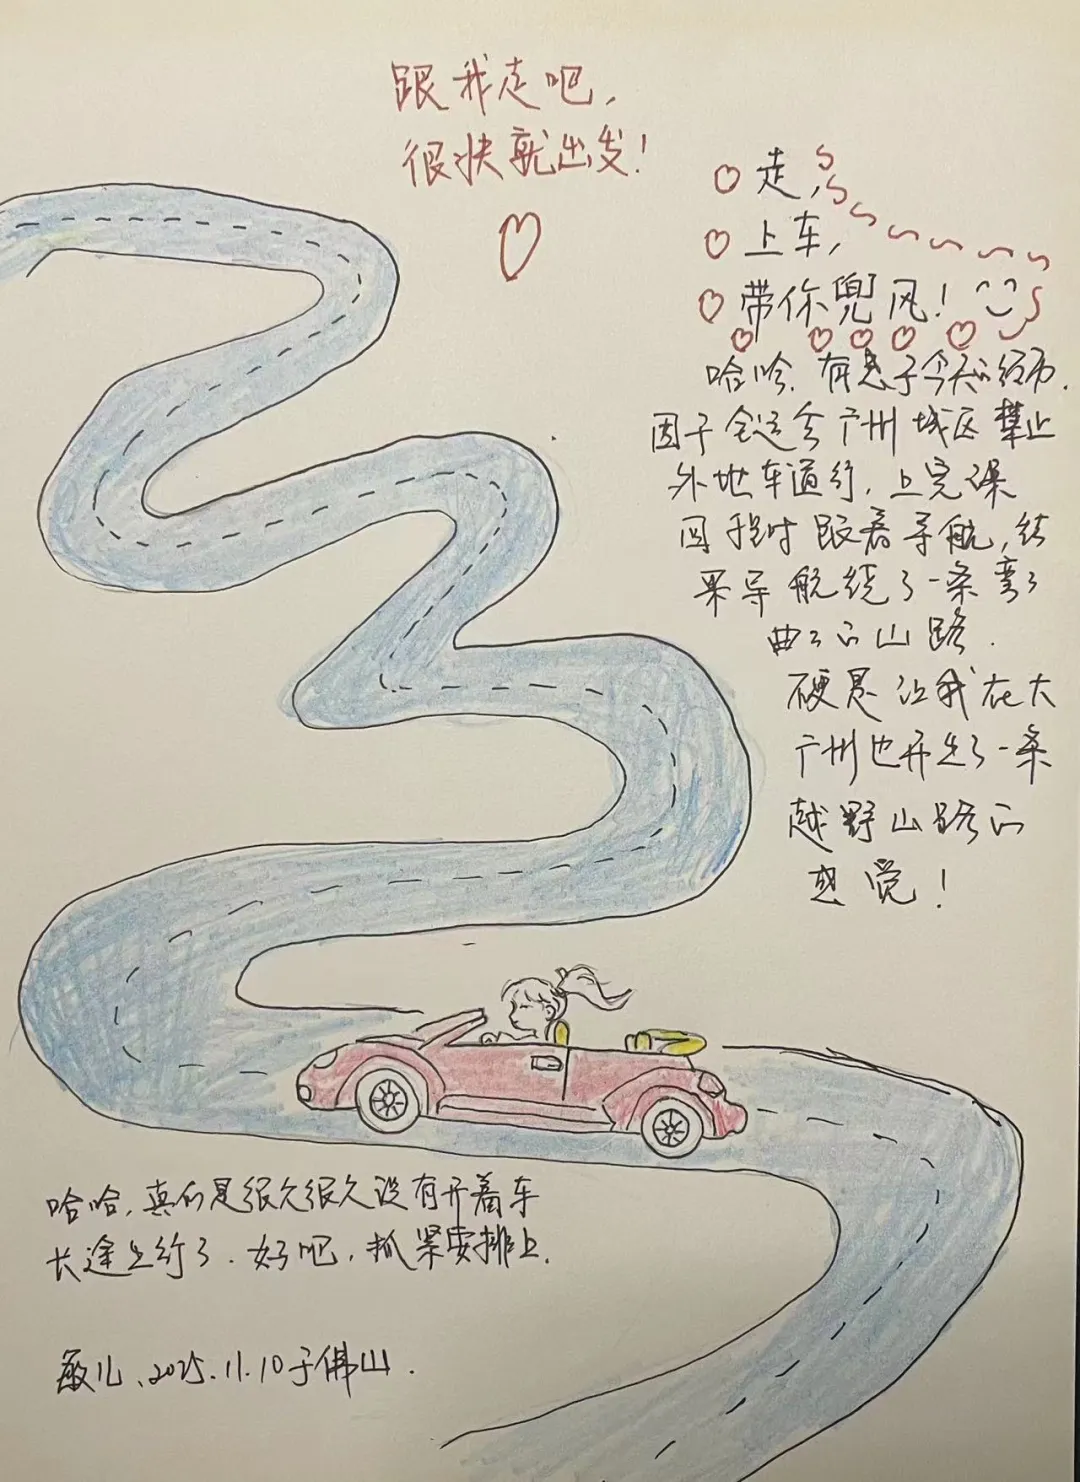 跟我走吧，
很快就出发！
走，
上车，
带你兜风！
哈哈，有感于今天的经历，
因于全运会广州城区禁止
外地车通行，上完课
回程时跟着导航，结
果导航绕了一条弯弯
曲曲的山路．
硬是让我在大
广州也开出了一条
越野山路的
感觉！
哈哈，真的是很久很久没有开着车
长途出行了．好吧，抓紧安排上．
敏儿、2025.11.10于佛山．